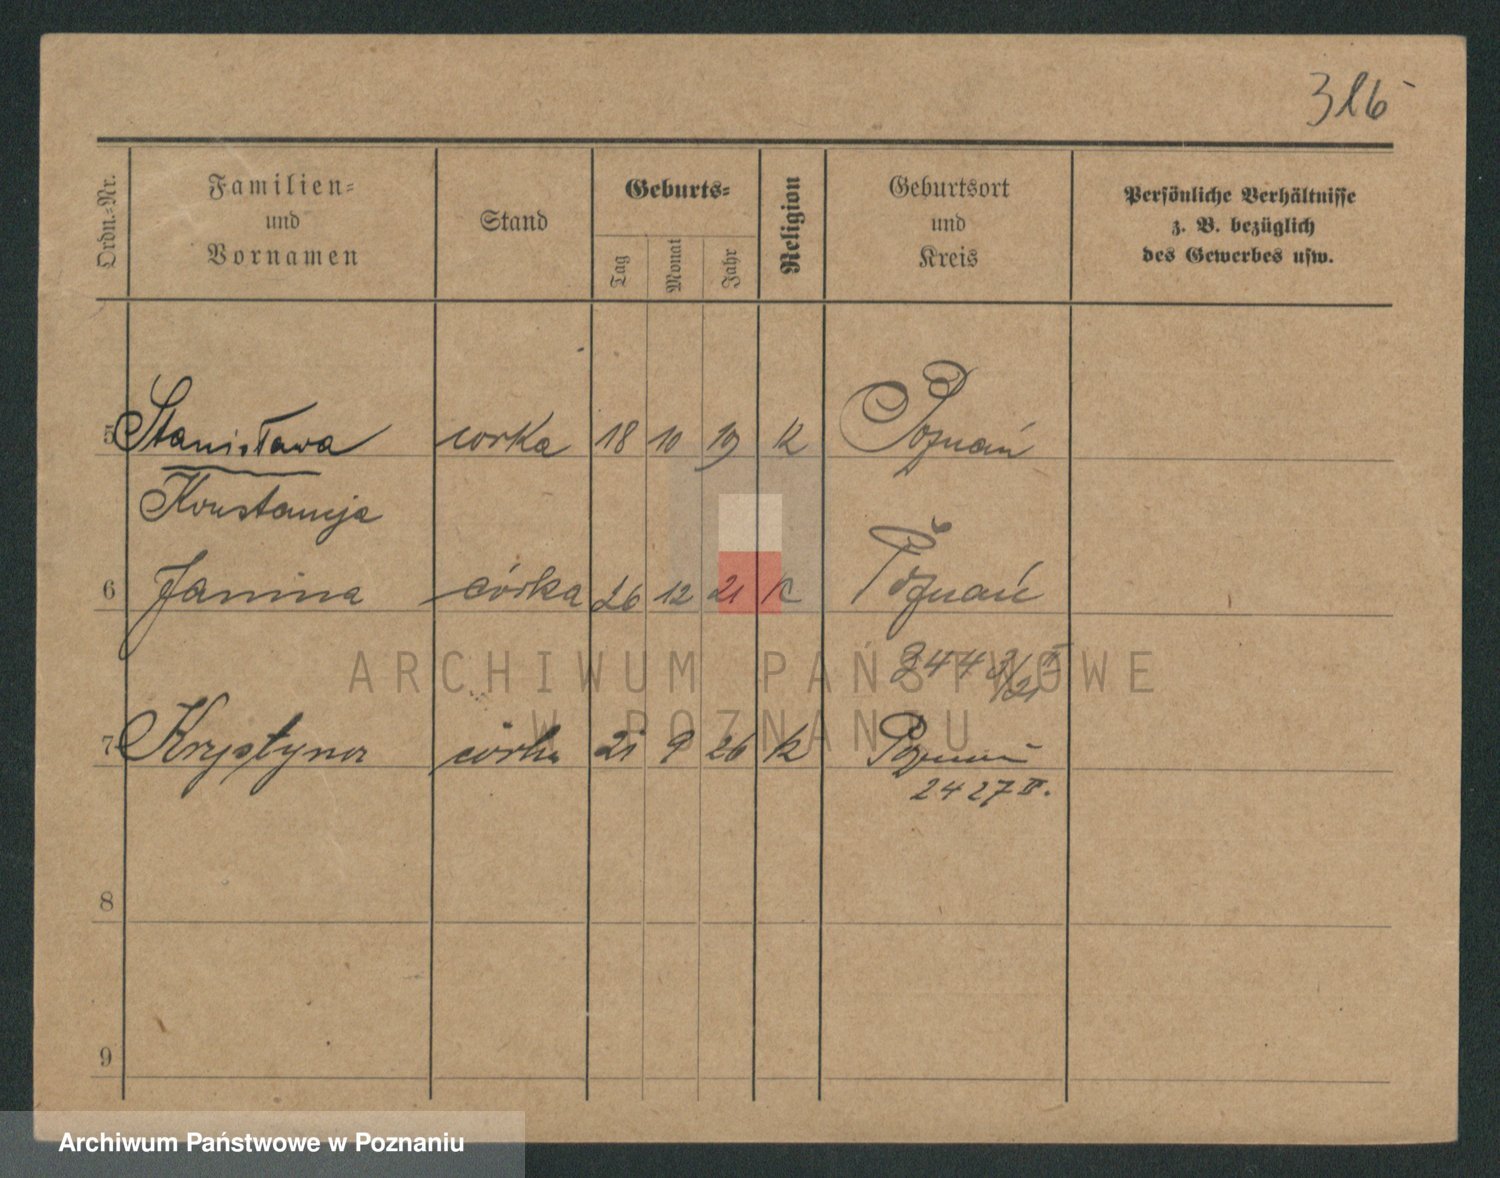 316
Ordn.-Nr.
Familien-
und
Vornamen
Stand
Geburts-
Tag Monat Jahr
Religion
Geburtsort
und
Kreis
Persönliche Verhältnisse
z. B. bezüglich
des Gewerbes usw.
5 Stanisława corka 18 10 19 K Poznań
Konstancja
6 Janina córka 26 12 21 K Poznań
ARCHIWUM PAŃSTWOWE
W POZNANIU
7 Krystyna córka 21 9 26 k Poznań
2427 II.
8
9
Archiwum Państwowe w Poznaniu